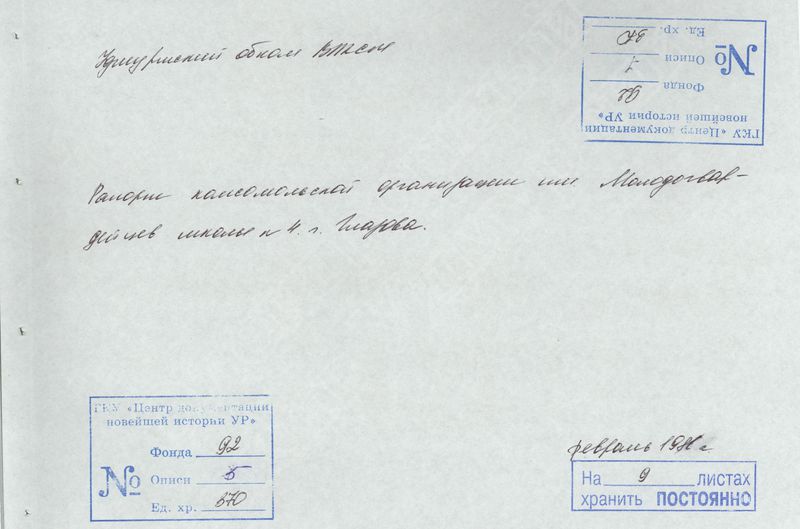 Удмуртский обком ВЛКСМ
ГКУ «Центр документации
новейшей истории УР»
Фонда 92
№ Описи
Ед. хр.
Рапорт комсомольской организации им. Молодогвар-
дейцев школы № 4. г. Глазова.
ГКУ «Центр документации
новейшей истории УР»
Фонда 92
№ Описи 5
Ед. хр. 370
февраль г.
На 9 листах
хранить ПОСТОЯННО